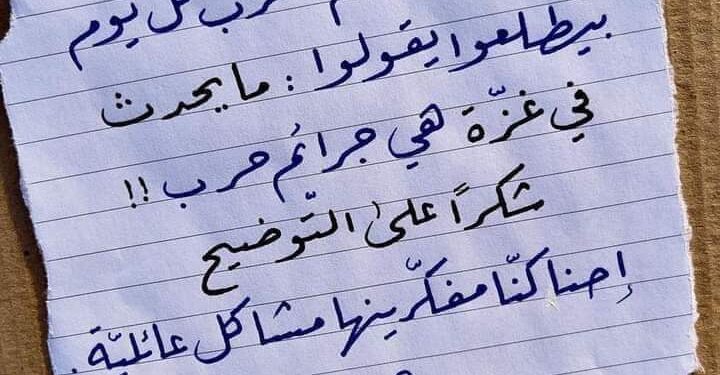 كل يوم
بيطلعوا يقولوا : ما يحدث
في غزّة هي جرائم حرب !!
شكرًا على التّوضيح
إحنا كنّا مفكّرينها مشاكل عائليّة.